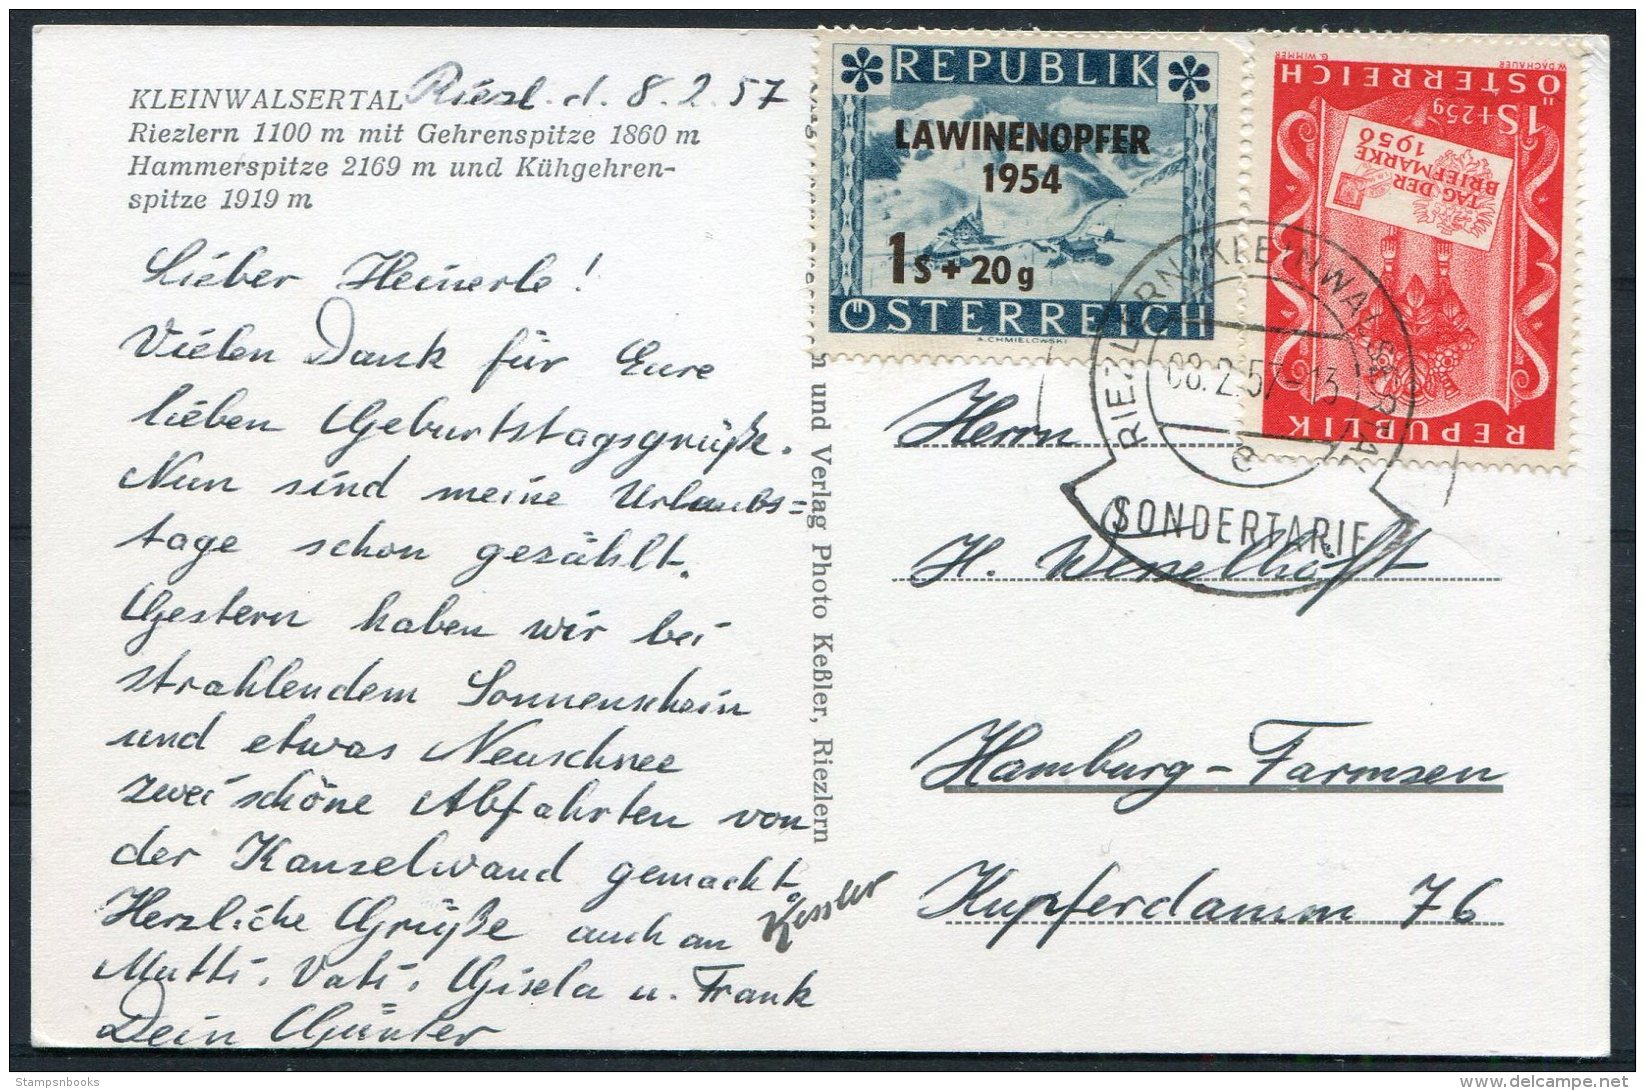 KLEINWALSERTAL Riezl. d. 8.2.57
Riezlern 1100 m mit Gehrenspitze 1860 m
Hammerspitze 2169 m und Kühgehren-
spitze 1919 m
Lieber Heinerle!
Vielen Dank für Eure
lieben Geburtstagsgrüße.
Nun sind meine Urlaubs=
tage schon gezählt.
Gestern haben wir bei
strahlendem Sonnenschein
und etwas Neuschnee
zwei schöne Abfahrten von
der Kanzelwand gemacht.
Herzliche Grüße auch an
Mutti, Vati, Gisela u. Frank
Dein Günter
Kessler
und Verlag Photo Keßler, Riezlern
REPUBLIK
LAWINENOPFER
1954
1S + 20g
ÖSTERREICH
A. CHMIELOWSKI
W. DACHAUER
G. WIMMER
ÖSTERREICH
1S+25g
TAG DER
BRIEFMARKE
1950
REPUBLIK
RIEZLERN/KLEINWALSERTAL
08.2.57-13
e
SONDERTARIF
Herrn
H. Wesselhöft
Hamburg-Farmsen
Kupferdamm 76
Stampsnbooks
delcampe.net